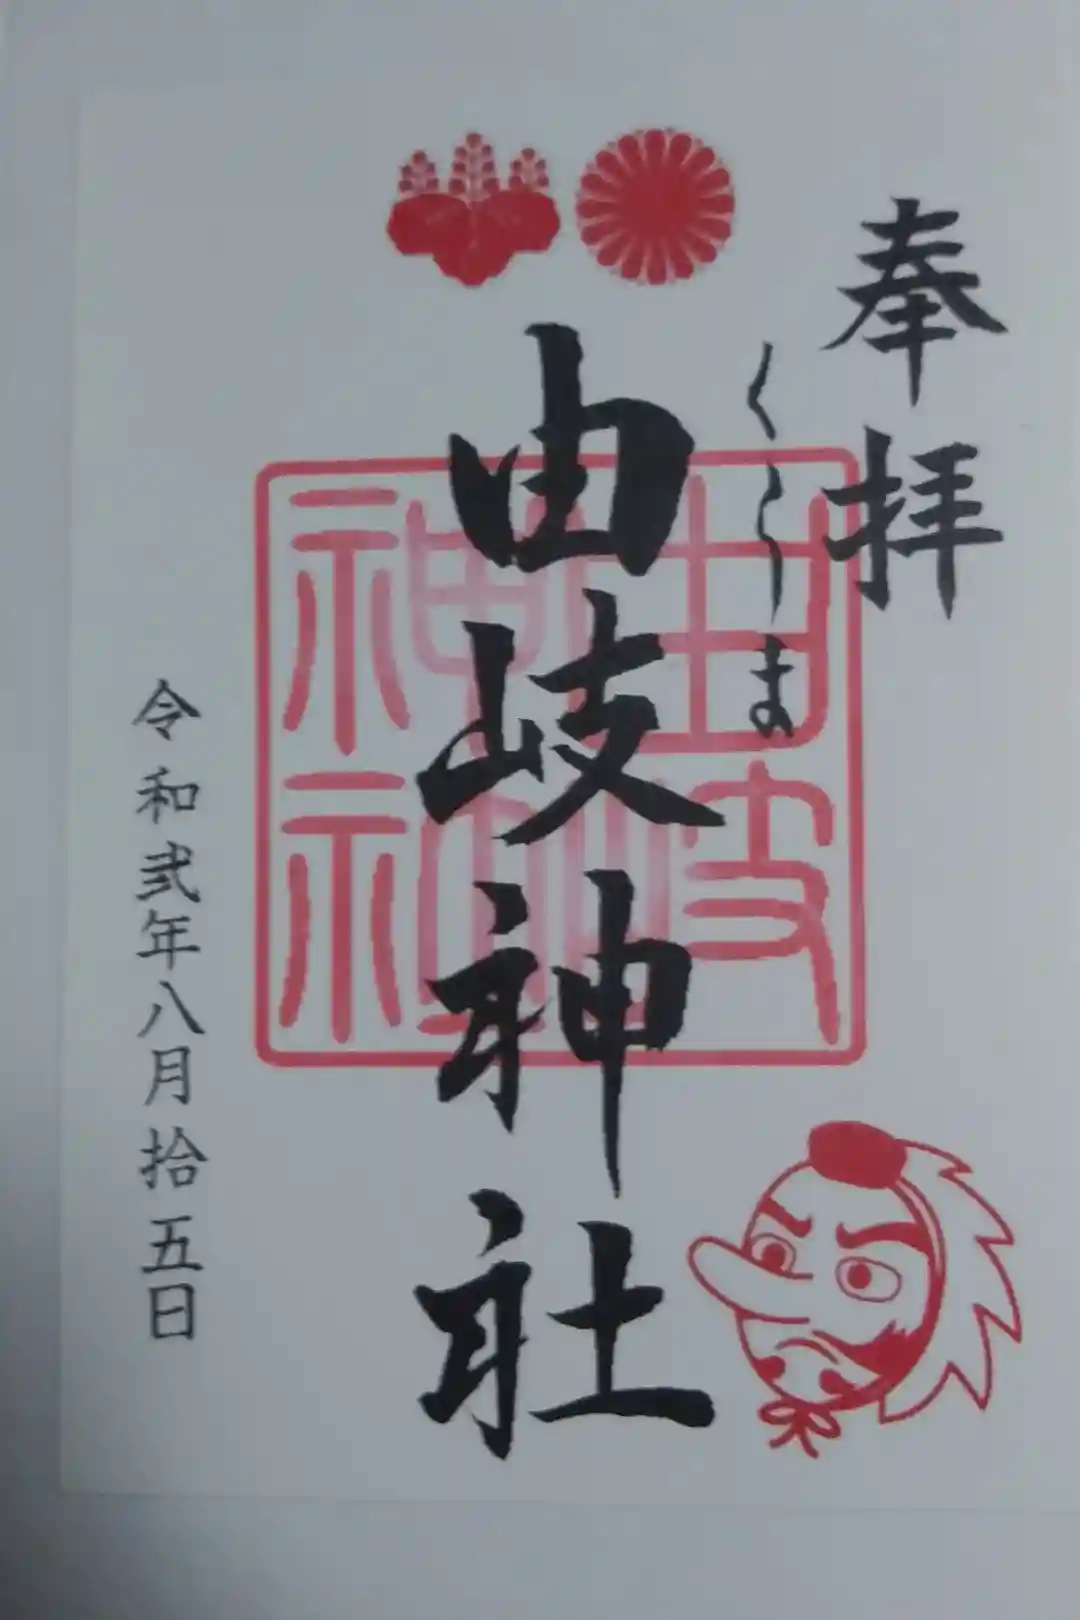 奉拝
くらま
由岐神社
由岐神社
令和弐年八月拾五日